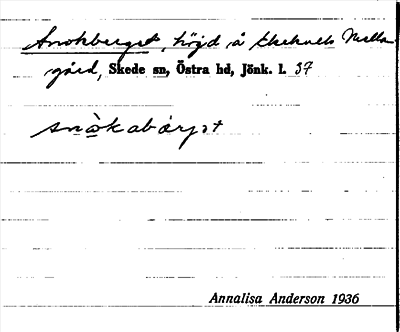 Snokberget, höjd å Ekekulls Mella-
gård, Skede sn, Östra hd, Jönk. l. 37
snòkabærjət
Annalisa Anderson 1936